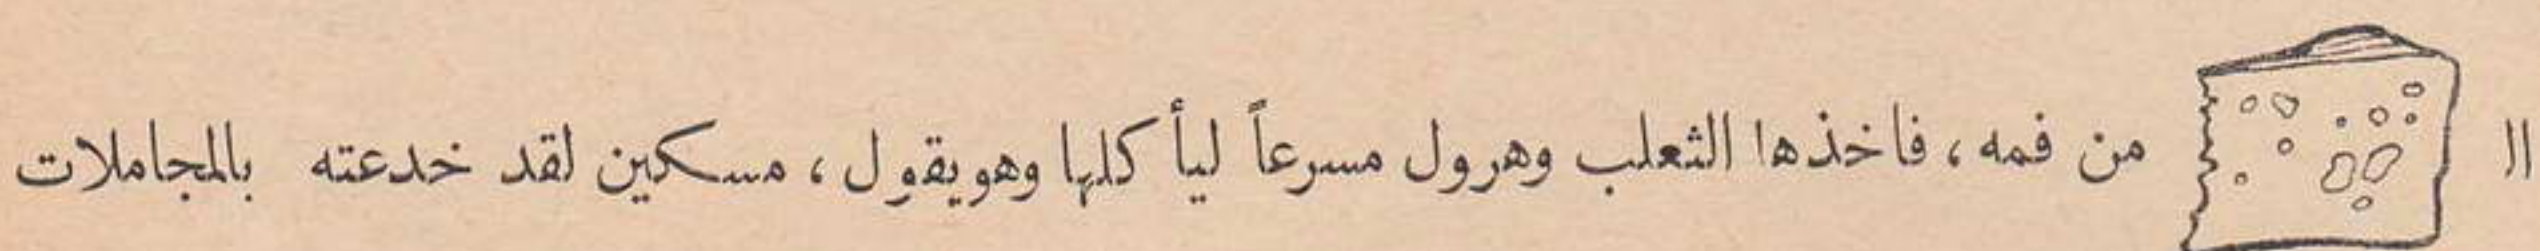 ال من فمه ، فاخذها الثعلب وهرول مسرعاً ليأكلها وهو يقول ، مسكين لقد خدعته بالمجاملات